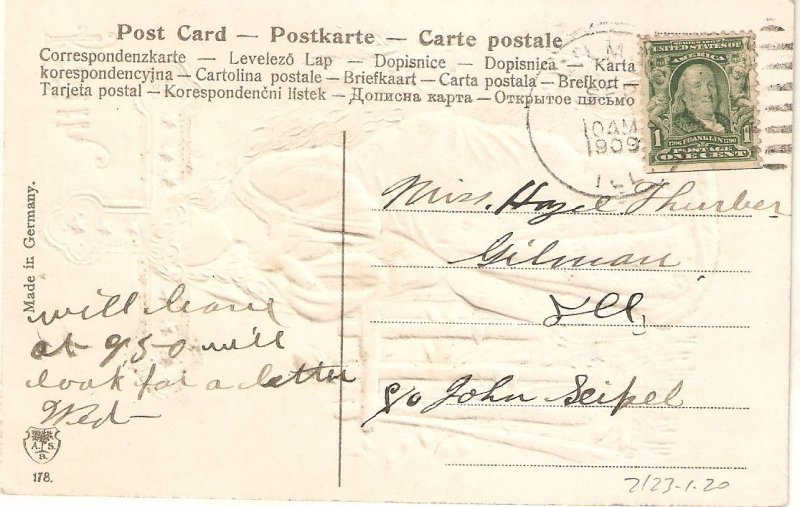 Post Card — Postkarte — Carte postale
Correspondenzkarte — Levelező Lap — Dopisnice — Dopisnica — Karta
korespondencyjna — Cartolina postale — Briefkaart — Carta postala — Brefkort —
Tarjeta postal — Korespondenční listek — Дописна карта — Открытое письмо
UNITED STATES OF
AMERICA
1 FRANKLIN 1
POSTAGE
ONE CENT
10 AM
1909
ILL
Miss. Hazel Thurber
Gilman
Ill,
c/o John Seipel
Made in Germany.
will leave
at 950 will
look for a letter
Wed
A. S.
B.
178.
2123-1.20